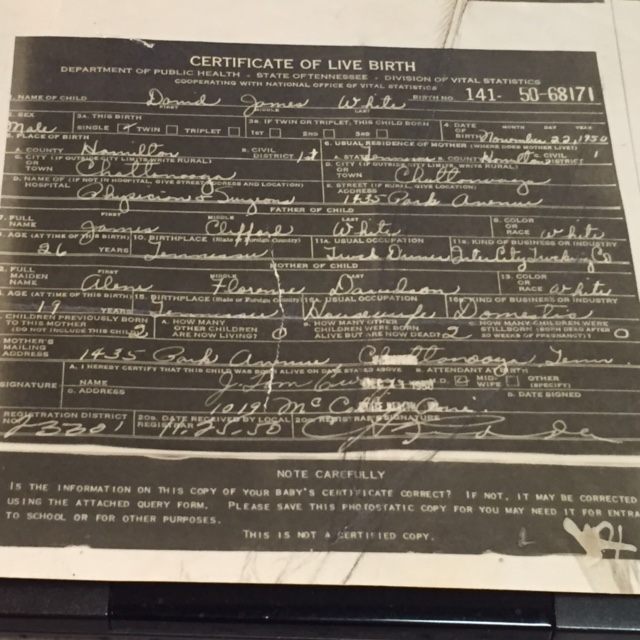 CERTIFICATE OF LIVE BIRTH
DEPARTMENT OF PUBLIC HEALTH - STATE OF TENNESSEE - DIVISION OF VITAL STATISTICS
COOPERATING WITH NATIONAL OFFICE OF VITAL STATISTICS
1. NAME OF CHILD David James White BIRTH NO. 141- 50-68171
FIRST MIDDLE LAST
SEX 3A. THIS BIRTH 3B. IF TWIN OR TRIPLET, THIS CHILD BORN 4. DATE OF BIRTH MONTH DAY YEAR
Male SINGLE TWIN TRIPLET 1ST 2ND 3RD November 22, 1950
PLACE OF BIRTH 6. USUAL RESIDENCE OF MOTHER (WHERE DOES MOTHER LIVE?)
A. COUNTY Hamilton B. CIVIL DISTRICT 1st A. STATE Tennessee B. COUNTY Hamilton C. CIVIL DISTRICT 1
C. CITY (IF OUTSIDE CITY LIMITS, WRITE RURAL) OR TOWN Chattanooga D. CITY (IF OUTSIDE CITY LIMITS, WRITE RURAL) OR TOWN Chattanooga
D. NAME OF (IF NOT IN HOSPITAL, GIVE STREET ADDRESS AND LOCATION) HOSPITAL Physicians & Surgeons E. STREET (IF RURAL, GIVE LOCATION) ADDRESS 1435 Park Avenue
FATHER OF CHILD
7. FULL NAME FIRST James MIDDLE Clifford LAST White 8. COLOR OR RACE White
AGE (AT TIME OF THIS BIRTH) 26 YEARS 10. BIRTHPLACE (State or Foreign Country) Tennessee 11A. USUAL OCCUPATION Truck Driver 11B. KIND OF BUSINESS OR INDUSTRY Inter City Trucking Co
MOTHER OF CHILD
2. FULL MAIDEN NAME FIRST Alene MIDDLE Florence LAST Davidson 13. COLOR OR RACE White
AGE (AT TIME OF THIS BIRTH) YEARS 15. BIRTHPLACE (State or Foreign Country) Tennessee 16A. USUAL OCCUPATION Housewife 16B. KIND OF BUSINESS OR INDUSTRY Domestic
CHILDREN PREVIOUSLY BORN TO THIS MOTHER (DO NOT INCLUDE THIS CHILD) 2 A. HOW MANY OTHER CHILDREN ARE NOW LIVING? 0 B. HOW MANY OTHER CHILDREN WERE BORN ALIVE BUT ARE NOW DEAD? 2 C. HOW MANY CHILDREN WERE STILLBORN (BORN DEAD AFTER 20 WEEKS OF PREGNANCY)? 0
MOTHER'S MAILING ADDRESS 1435 Park Avenue Chattanooga Tenn
A. I HEREBY CERTIFY THAT THIS CHILD WAS BORN ALIVE ON DATE STATED ABOVE B. ATTENDANT AT BIRTH
SIGNATURE NAME M.D. MIDWIFE OTHER (SPECIFY)
C. ADDRESS D. DATE SIGNED
REGISTRATION DISTRICT NO. 23301 20A. DATE RECEIVED BY LOCAL REGISTRAR 11-25-50 20B. REGISTRAR'S SIGNATURE
NOTE CAREFULLY
IS THE INFORMATION ON THIS COPY OF YOUR BABY'S CERTIFICATE CORRECT? IF NOT, IT MAY BE CORRECTED
USING THE ATTACHED QUERY FORM. PLEASE SAVE THIS PHOTOSTATIC COPY FOR YOU MAY NEED IT FOR ENTRA
TO SCHOOL OR FOR OTHER PURPOSES.
THIS IS NOT A CERTIFIED COPY.